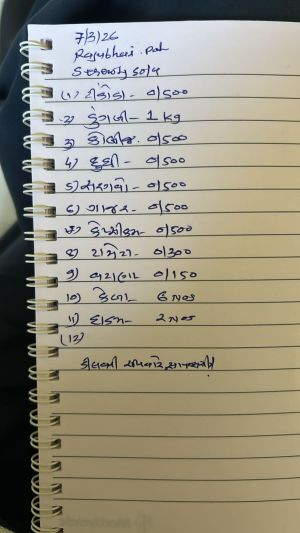 7/3/26
Rajubhai. pat
(1) ટીંડોડા - 0/500
2) ડુંગળી - 1 kg
3) કોબીજ. 0/500
4) દુધી - 0/500
5) સરગવો - 0/500
6) ગાજર - 0/500
7) કેપ્સીકમ - 0/500
8) ટામેટા - 0/300
9) વટાણા 0/150
10) કેળા 6 Nos
11) દાડમ 2 Nos
(12)